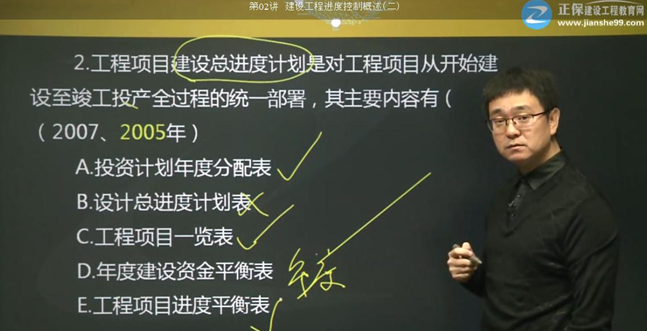 第02讲 建设工程进度控制概述(二)
正保建设工程教育网
www.jianshe99.com
2.工程项目建设总进度计划是对工程项目从开始建
设至竣工投产全过程的统一部署，其主要内容有（
（2007、2005年）
A.投资计划年度分配表
B.设计总进度计划表
C.工程项目一览表
D.年度建设资金平衡表
E.工程项目进度平衡表